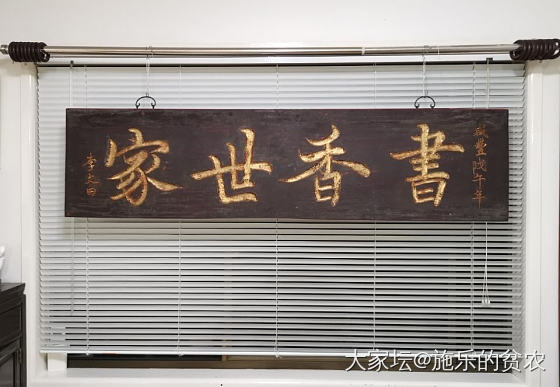 咸豐戊午年
書香世家
李文田
大家坛@施乐的贫农